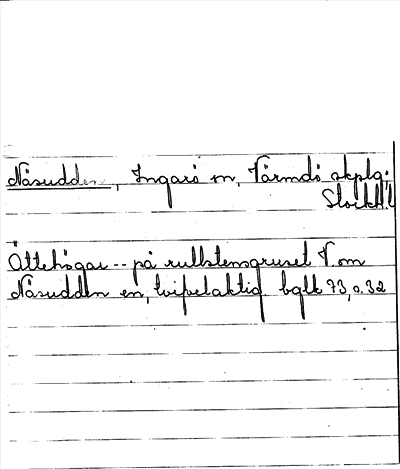 Näsudden, Ingarö sn, Värmdö skplg.
Stockh.l
Ättehögar -- på rullstensgruset V. om
Näsudden en, tvifvelaktig bglk 73, s. 32